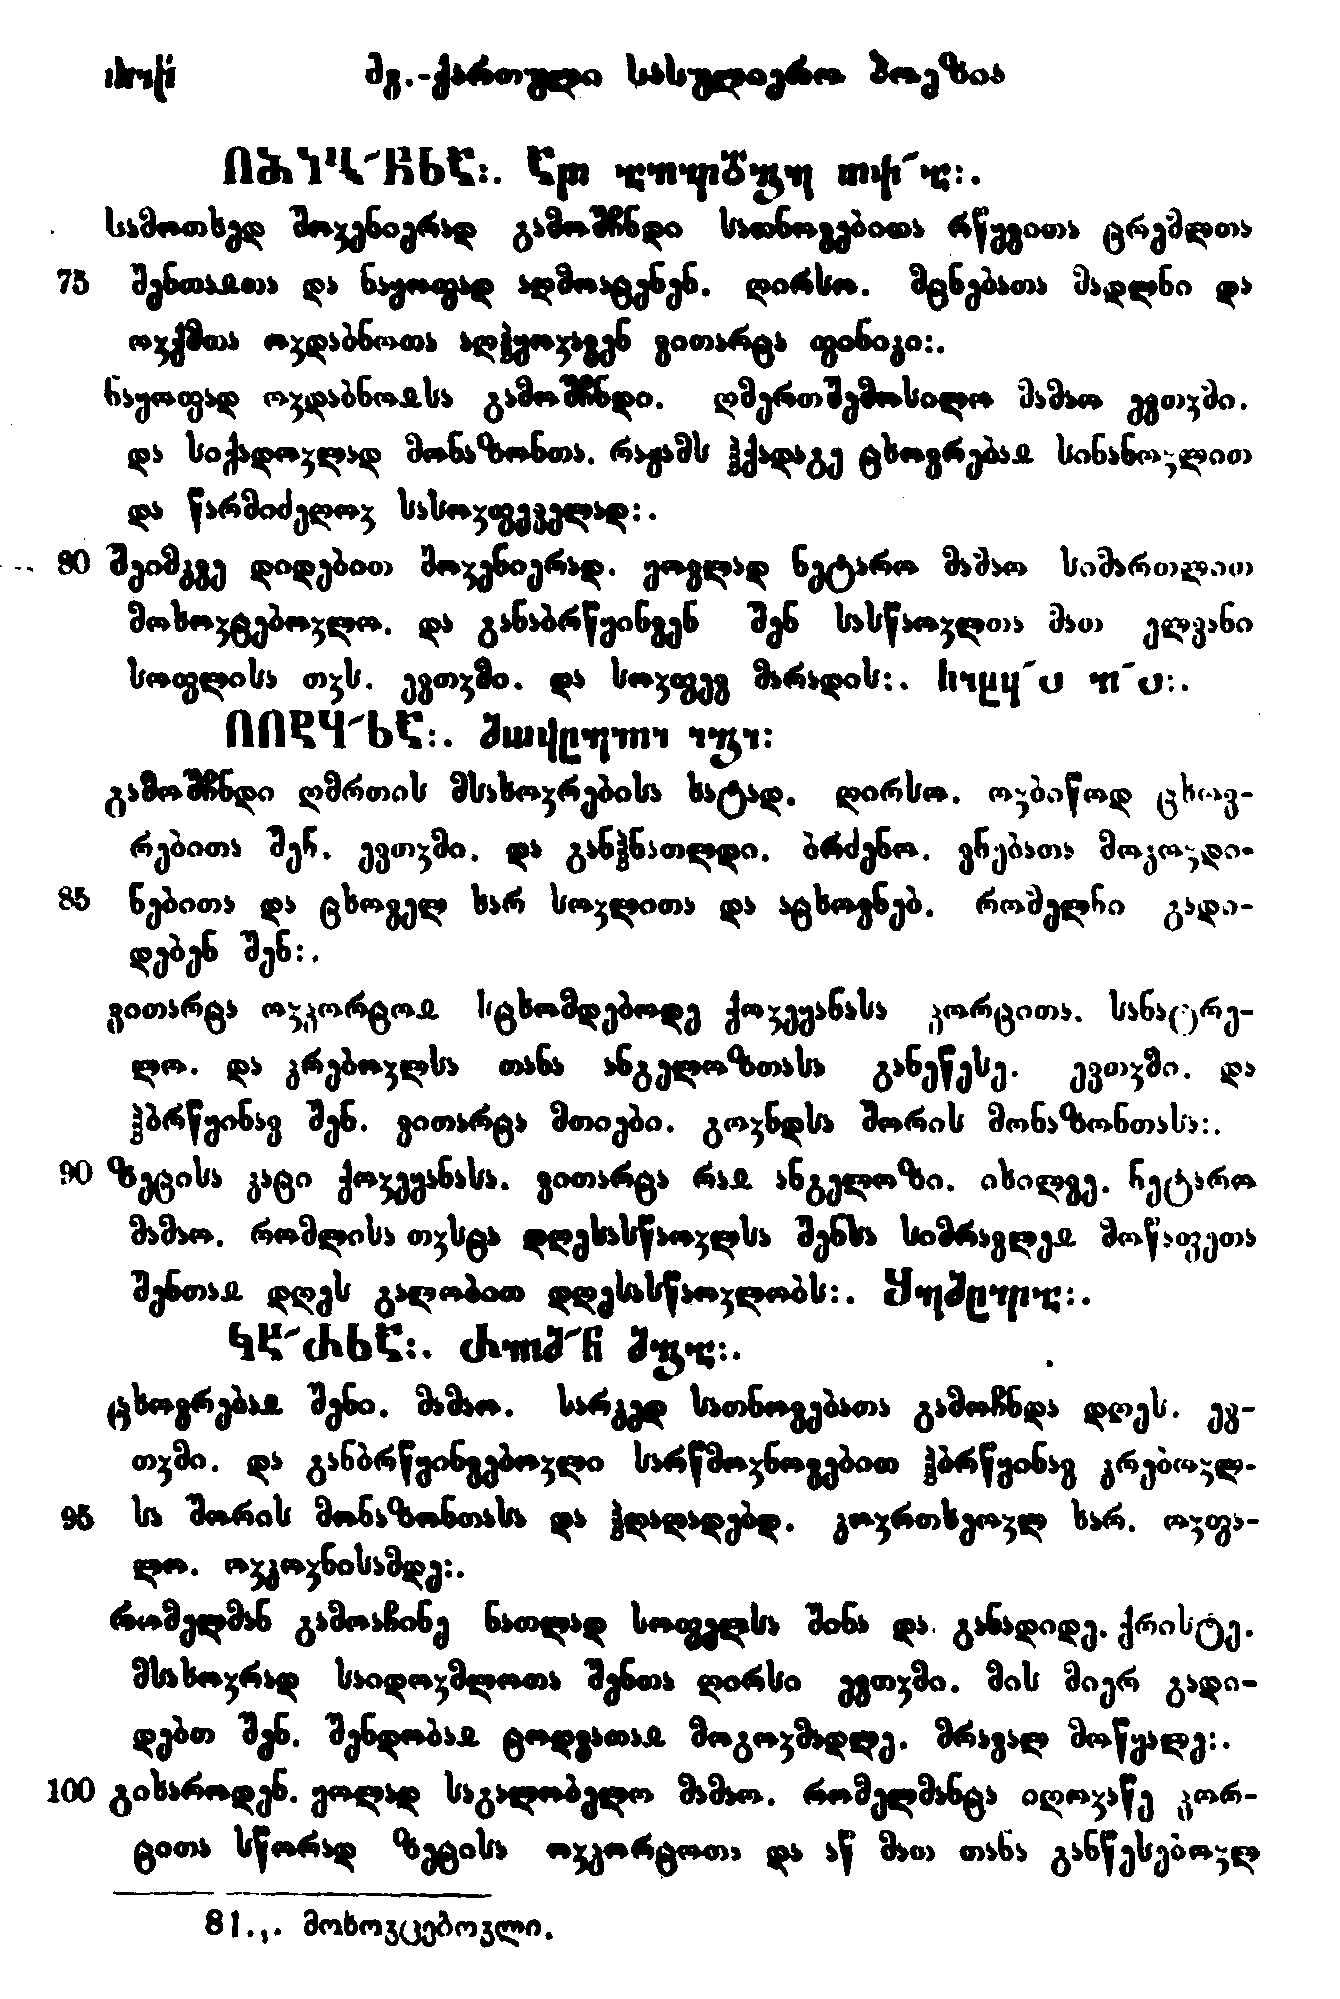 ძვ.-ქართული სასულიერო პოეზია
სამოთხედ შოჳენიერად გამოშჩნდი სათნოვებითა რწყვითა ცრემლთა
75 შენთაჲთა და ნაყოფად აღმოაცენენ. ღირსო. მცნებათა მადლნი და
ოჳქმთა ოჳდაბნოთა აღჰყოჳავენ ვითარცა ფინიკი:.
ნაყოფად ოჳდაბნოჲსა გამოშჩნდი. ღმერთშემოსილო მამაო ევთჳმი.
და სიქადოჳლად მონაზონთა. რაჟამს ჰქადაგე ცხოვრებაჲ სინანოჳლით
და წარმიძეღოჳ სასოჳფეველად:.
80 შეიმკვე დიდებით შოჳენიერად. ყოვლად ნეტარო მამაო სიმართლით
მოხოჳცებოჳლო. და განაბრწყინვენ შენ სასწაოჳლთა მათ ელვანი
სოფლისა თჳს. ევთჳმი. და სოჳფევ მარადის:.
გამოშჩნდი ღმრთის მსახოჳრებისა ხატად. ღირსო. ოჳბიწოდ ცხოვ-
რებითა შენ. ევთჳმი. და განჰნათლდი. ბრძენო. ვნებათა მოკოჳდი-
85 ნებითა და ცხოველ ხარ სოჳლითა და აცხოვნებ. რომელნი გადი-
დებენ შენ:.
ვითარცა ოჳკორცოჲ სცხომდებოდე ქოჳეყანასა კორცითა. სანატრე-
ლო. და კრებოჳლსა თანა ანგელოზთასა განეწესე. ევთჳმი. და
ჰბრწყინავ შენ. ვითარცა მთიები. გოჳნდსა შორის მონაზონთასა:.
90 ზეცისა კაცი ქოჳეყანასა. ვითარცა რაჲ ანგელოზი. იხილვე. ნეტარო
მამაო. რომლისა თჳსცა დღესასწაოჳლსა შენსა სიმრავლეჲ მოწაფეთა
შენთაჲ დღეს გალობით დღესასწაოჳლობს:.
ცხოვრებაჲ შენი. მამაო. სარკედ სათნოვებათა გამოჩნდა დღეს. ევ-
თჳმი. და განბრწყინვებოჳლი სარწმოჳნოვებით ჰბრწყინავ კრებოჳლ-
95 სა შორის მონაზონთასა და ჰღაღადებდ. კოჳრთხეოჳლ ხარ. ოჳფა-
ლო. ოჳკოჳნისამდე:.
რომელმან გამოაჩინე ნათლად სოფელსა შინა და განადიდე. ქრისტე.
მსახოჳრად საიდოჳმლოთა შენთა ღირსი ევთჳმი. მის მიერ გადი-
დებთ შენ. შენდობაჲ ცოდვათაჲ მოგოჳმადლე. მრავალ მოწყალე:.
100 გიხაროდენ. ყოლად საგალობელო მამაო. რომელმანცა იღოჳაწე კორ-
ცითა სწორად ზეცისა ოჳკორცოთა და აწ მათ თანა განწესებოჳლ
81.,. მოხოჳცებოჳლი.